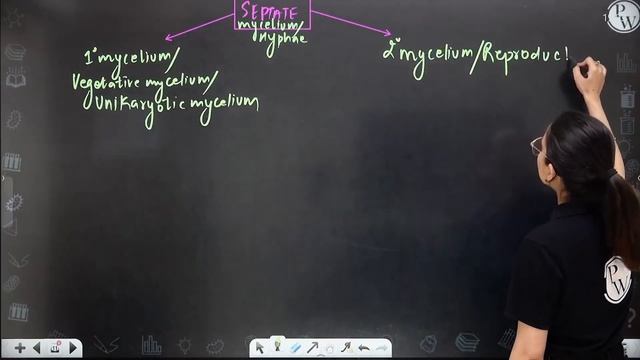 SEPTATE
mycelium/
Hyphae
1° mycelium/
Vegetative mycelium/
Unikaryotic mycelium
2° mycelium/Reproduc
PW
PW